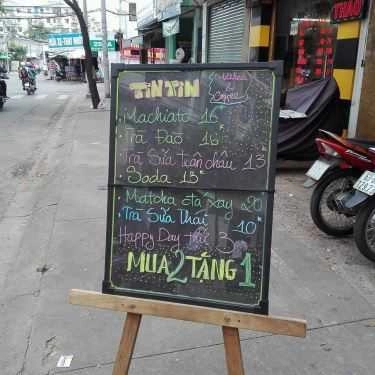 TINTIN
Machiato 16
Trà Đào 16K
Trà Sữa trân châu 13
Soda 15K
Matcha đá xay 20
Trà Sữa Thái 10K
Happy Day thứ 3
MUA 2 TẶNG 1
THẢO